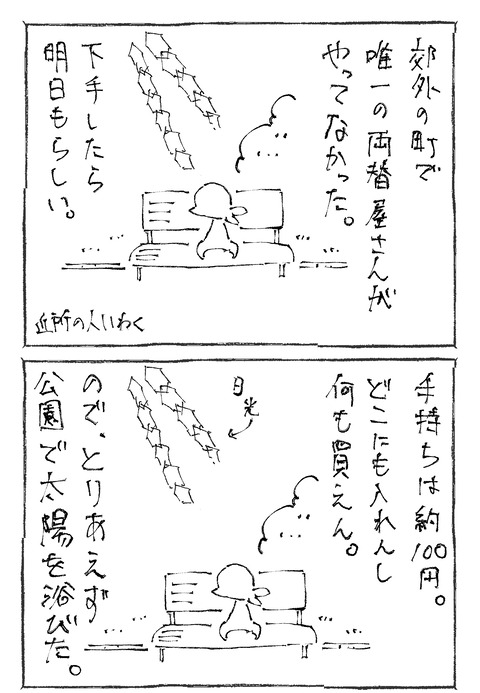 郊外の町で
唯一の両替屋さんが
やってなかった。
下手したら
明日もらしい。
近所の人いわく
手持ちは約100円。
どこにも入れんし
何も買えん。
日光
ので、とりあえず
公園で太陽を浴びた。